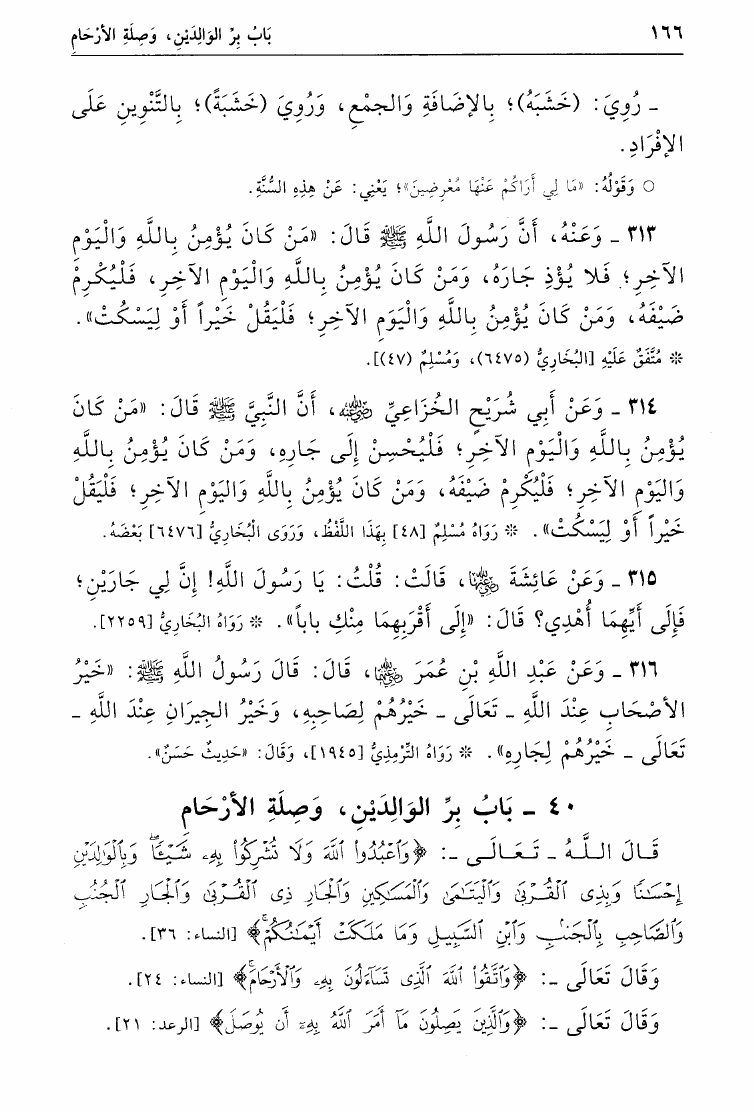 ١٦٦ بَابُ بِرِّ الوَالِدَيْنِ، وَصِلَةِ الأرْحَامِ
ـ رُوِيَ: (خَشَبَهُ)؛ بِالإضَافَةِ وَالجمْعِ، وَرُوِيَ (خَشَبَةً)؛ بِالتَّنْوِينِ عَلَى
الإفْرَادِ.
○ وَقَوْلُهُ: «مَا لِي أَرَاكُمْ عَنْهَا مُعْرِضِينَ»؛ يَعْنِي: عَنْ هذِهِ السُّنَّةِ.
٣١٣ ـ وَعَنْهُ، أَنَّ رَسُولَ اللَّهِ ﷺ قَالَ: «مَنْ كَانَ يُؤْمِنُ بِاللَّهِ وَالْيَوْمِ
الآخِرِ؛ فَلا يُؤْذِ جَارَهُ، وَمَنْ كَانَ يُؤْمِنُ بِاللَّهِ وَالْيَوْمِ الآخِرِ، فَلْيُكْرِمْ
ضَيْفَهُ، وَمَنْ كَانَ يُؤْمِنُ بِاللَّهِ وَالْيَومِ الآخِرِ؛ فَلْيَقُلْ خَيْراً أَوْ لِيَسْكُتْ».
* مُتَّفَقٌ عَلَيْهِ [البُخَارِيُّ (٦٤٧٥)، وَمُسْلِمٌ (٤٧)].
٣١٤ ـ وَعَنْ أَبِي شُرَيْحٍ الخُزَاعِيِّ رضي الله عنه، أَنَّ النَّبِيَّ ﷺ قَالَ: «مَنْ كَانَ
يُؤْمِنُ بِاللَّهِ وَالْيَوْمِ الآخِرِ؛ فَلْيُحْسِنْ إِلَى جَارِهِ، وَمَنْ كَانَ يُؤْمِنُ بِاللَّهِ
وَاليَوْمِ الآخِرِ؛ فَلْيُكْرِمْ ضَيْفَهُ، وَمَنْ كَانَ يُؤْمِنُ بِاللَّهِ وَاليَوْمِ الآخِرِ؛ فَلْيَقُلْ
خَيْراً أَوْ لِيَسْكُتْ». * رَوَاهُ مُسْلِمٌ [٤٨] بِهَذَا اللَّفْظُ، وَرَوَى الْبُخَارِيُّ [٦٤٧٦] بَعْضَهُ.
٣١٥ ـ وَعَنْ عَائِشَةَ رضي الله عنها، قَالَتْ: قُلْتُ: يَا رَسُولَ اللَّهِ! إِنَّ لِي جَارَيْنِ؛
فَإِلَى أَيِّهِمَا أُهْدِي؟ قَالَ: «إِلَى أَقْرَبِهِمَا مِنْكِ باباً». * رَوَاهُ البُخَارِيُّ [٢٢٥٩].
٣١٦ ـ وَعَنْ عَبْدِ اللَّهِ بْنِ عُمَرَ رضي الله عنهما، قَالَ: قَالَ رَسُولُ اللَّهِ ﷺ: «خَيْرُ
الأصْحَابِ عِنْدَ اللَّهِ ـ تَعَالَى ـ خَيْرُهُمْ لِصَاحِبِهِ، وَخَيْرُ الجيرَانِ عِنْدَ اللَّهِ ـ
تَعَالَى ـ خَيْرُهُمْ لِجَارِهِ». * رَوَاهُ التِّرْمِذِيُّ [١٩٤٥]، وَقَالَ: «حَدِيثٌ حَسَنٌ».
٤٠ ـ بَابُ بِرِّ الوَالِدَيْنِ، وَصِلَةِ الأرْحَامِ
قَالَ اللَّهُ ـ تَعَالَى ـ: ﴿وَٱعْبُدُوا۟ ٱللَّهَ وَلَا تُشْرِكُوا۟ بِهِۦ شَيْـًٔا ۖ وَبِٱلْوَٰلِدَيْنِ
إِحْسَـٰنًا وَبِذِى ٱلْقُرْبَىٰ وَٱلْيَتَـٰمَىٰ وَٱلْمَسَـٰكِينِ وَٱلْجَارِ ذِى ٱلْقُرْبَىٰ وَٱلْجَارِ ٱلْجُنُبِ
وَٱلصَّاحِبِ بِٱلْجَنۢبِ وَٱبْنِ ٱلسَّبِيلِ وَمَا مَلَكَتْ أَيْمَـٰنُكُمْ ۗ﴾ [النساء: ٣٦].
وَقَالَ تَعَالَى ـ: ﴿وَٱتَّقُوا۟ ٱللَّهَ ٱلَّذِى تَسَآءَلُونَ بِهِۦ وَٱلْأَرْحَامَ ۚ﴾ [النساء: ٢٤].
وَقَالَ تَعَالَى ـ: ﴿وَٱلَّذِينَ يَصِلُونَ مَآ أَمَرَ ٱللَّهُ بِهِۦٓ أَن يُوصَلَ﴾ [الرعد: ٢١].